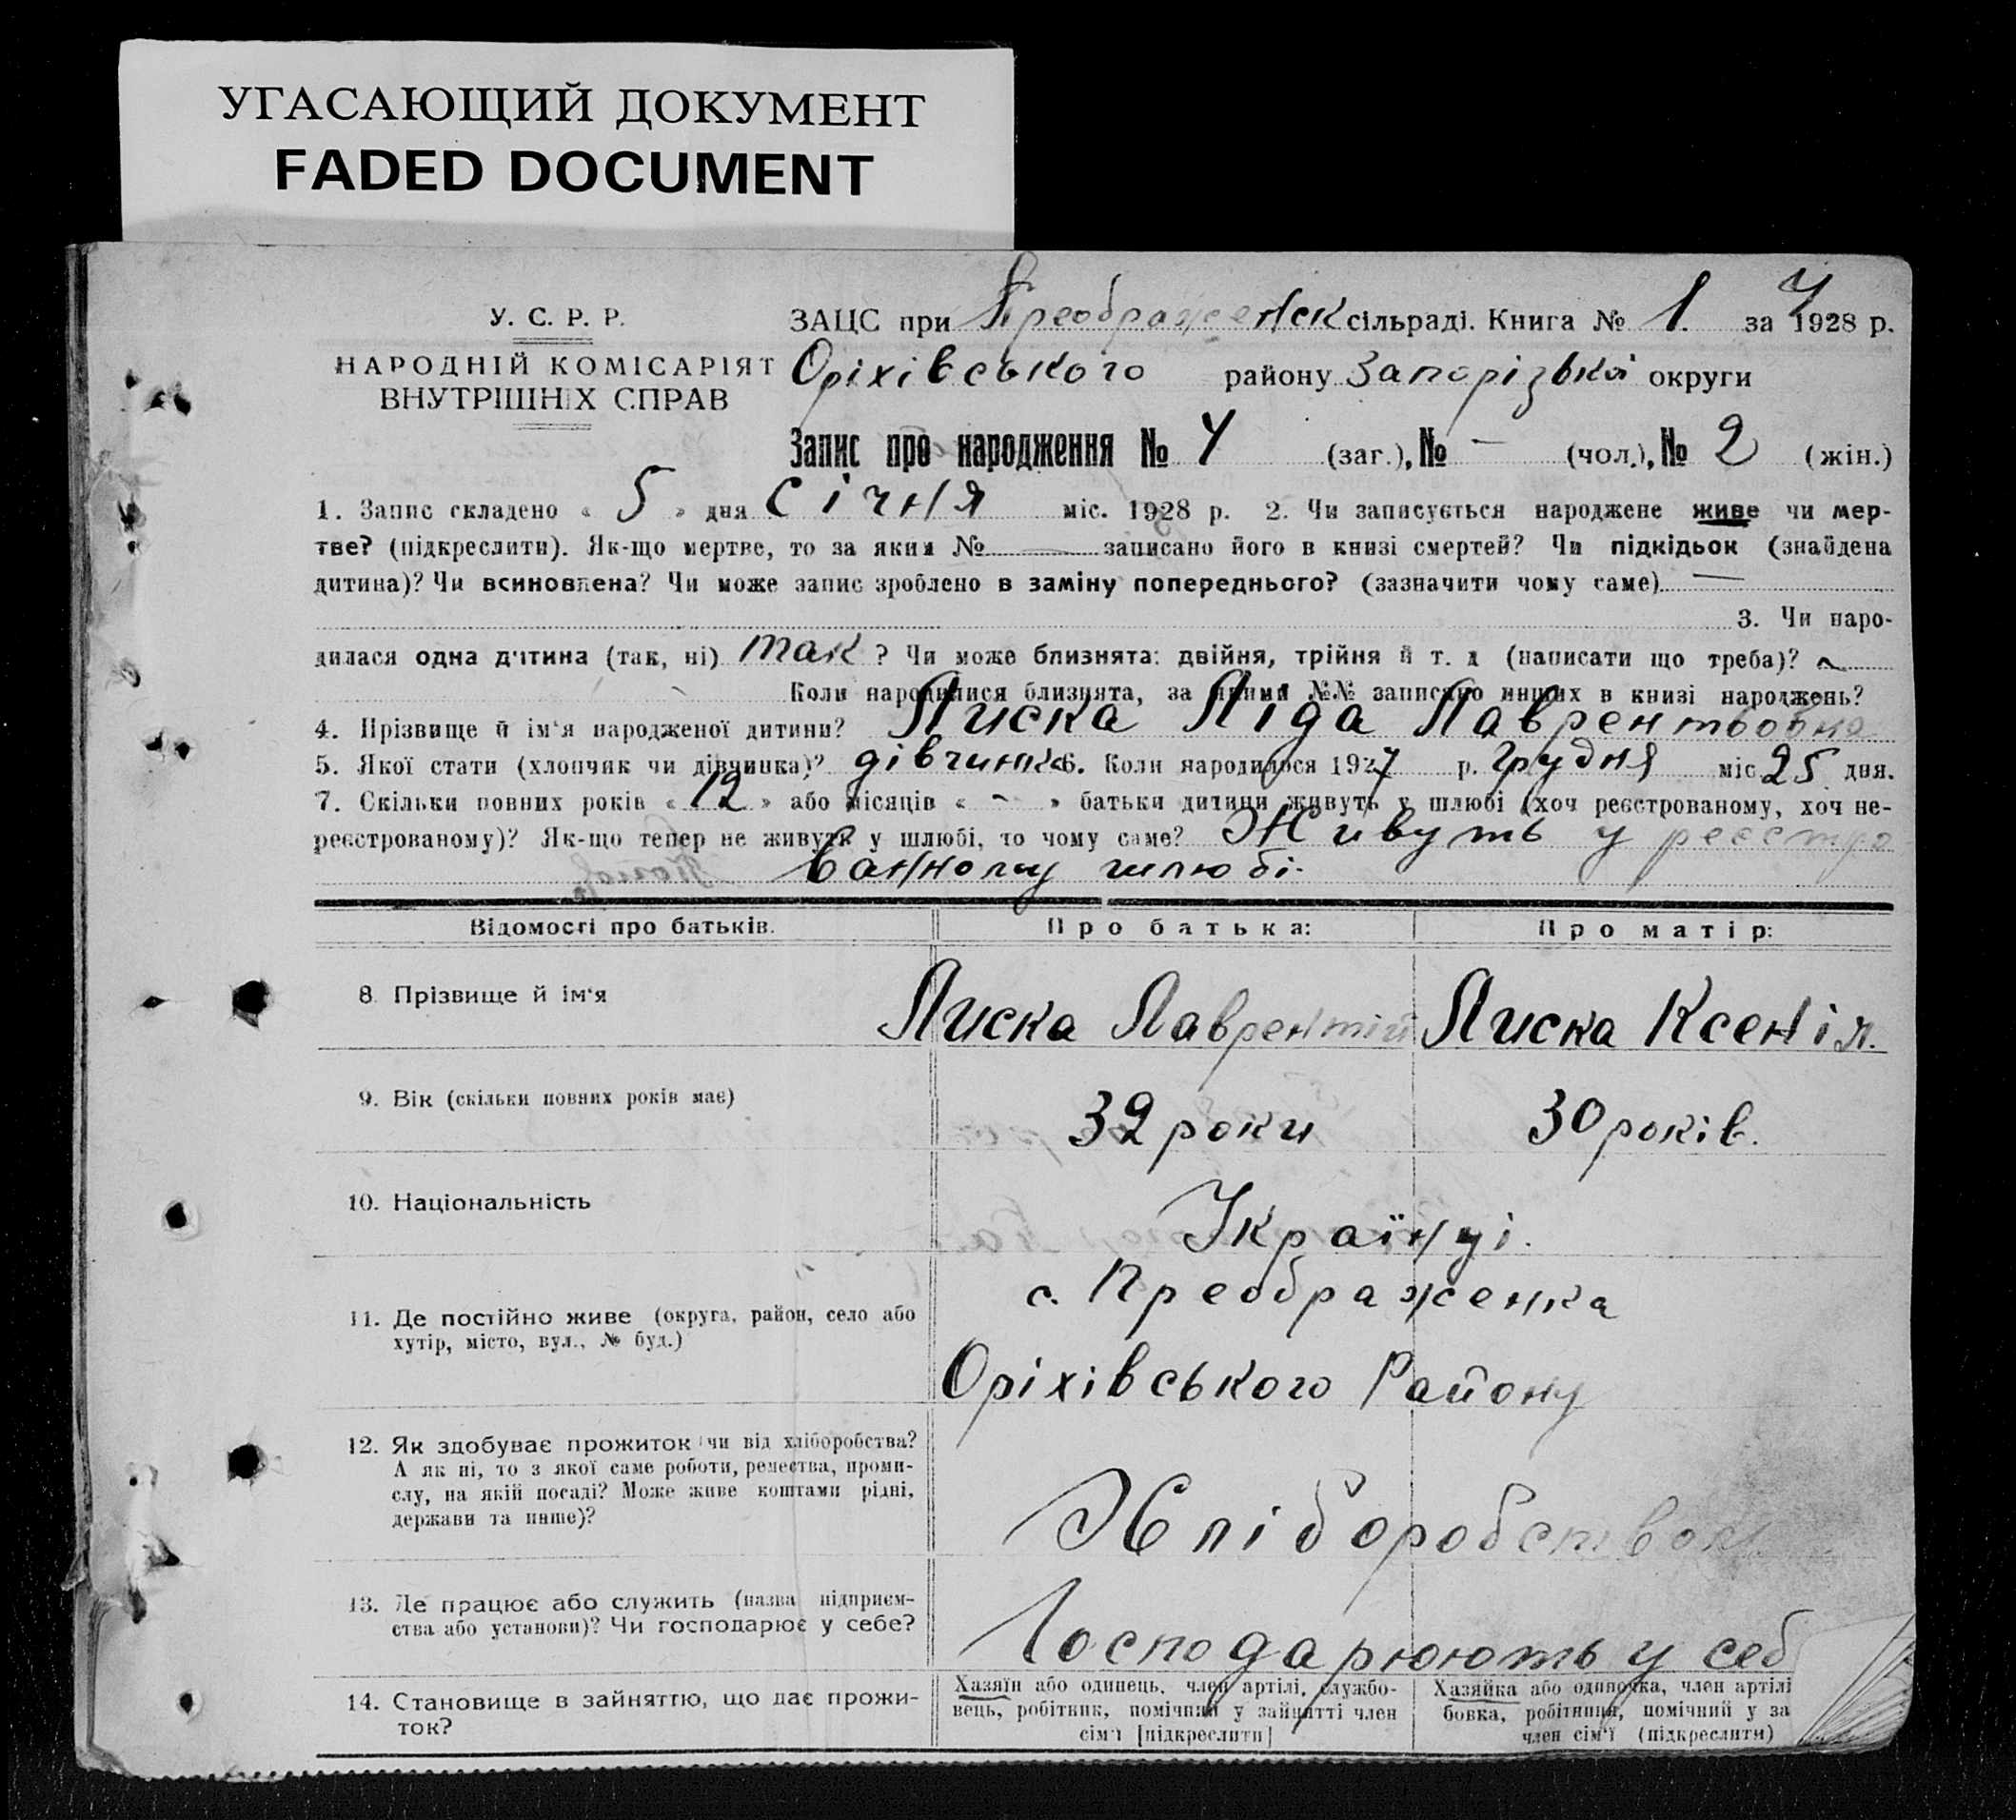 УГАСАЮЩИЙ ДОКУМЕНТ
FADED DOCUMENT
У. С. Р. Р.
НАРОДНІЙ КОМІСАРІЯТ
ВНУТРІШНІХ СПРАВ
ЗАЦС при Преображенськ сільраді. Книга № 1. за 1928 р.
Оріхівського району Запорізької округи
Запис про народження № 4 (заг.), № — (чол.), № 2 (жін.)
1. Запис складено « 5 » дня січня міс. 1928 р. 2. Чи записується народжене живе чи мер-
тве? (підкреслити). Як-що мертве, то за яким № — записано його в книзі смертей? Чи підкідьок (знайдена
дитина)? Чи всиновлена? Чи може запис зроблено в заміну попереднього? (зазначити чому саме) —
3. Чи наро-
дилася одна дитина (так, ні) так ? Чи може близнята: двійня, трійня й т. д (написати що треба)?
Коли народилися близнята, за якими №№ записано инших в книзі народжень?
4. Прізвище й ім'я народженої дитини? Лиска Ліда Лаврентьовна
5. Якої статі (хлопчик чи дівчинка)? дівчинка 6. Коли народилося 1927 р. грудня міс 25 дня.
7. Скільки повних років « 12 » або місяців « - » батьки дитини живуть у шлюбі (хоч реєстрованому, хоч не-
реєстрованому)? Як-що тепер не живуть у шлюбі, то чому саме? Живуть у реєстро
ванному шлюбі.
Відомості про батьків. Про батька: Про матір:
8. Прізвище й ім'я Лиска Лаврентій Лиска Ксенія.
9. Вік (скільки повних років має) 32 роки 30 років.
10. Національність Українці.
с. Преображенка
11. Де постійно живе (округа, район, село або
хутір, місто, вул., № буд.)
Оріхівського Району
12. Як здобуває прожиток чи від хліборобства?
А як ні, то з якої саме роботи, ремества, проми-
слу, на якій посаді? Може живе коштами рідні,
держави та инше)?
Хліборобством
13. Де працює або служить (назва підприєм-
ства або установи)? Чи господарює у себе?
Господарюють у себ
14. Становище в зайняттю, що дає прожи-
ток?
Хазяїн або одинець, член артілі, службо-
вець, робітник, помічний у зайнятті член
сім'ї [підкреслити]
Хазяйка або одиночка, член артілі
бовка, робітниця, помічний у за
член сім'ї (підкреслити)